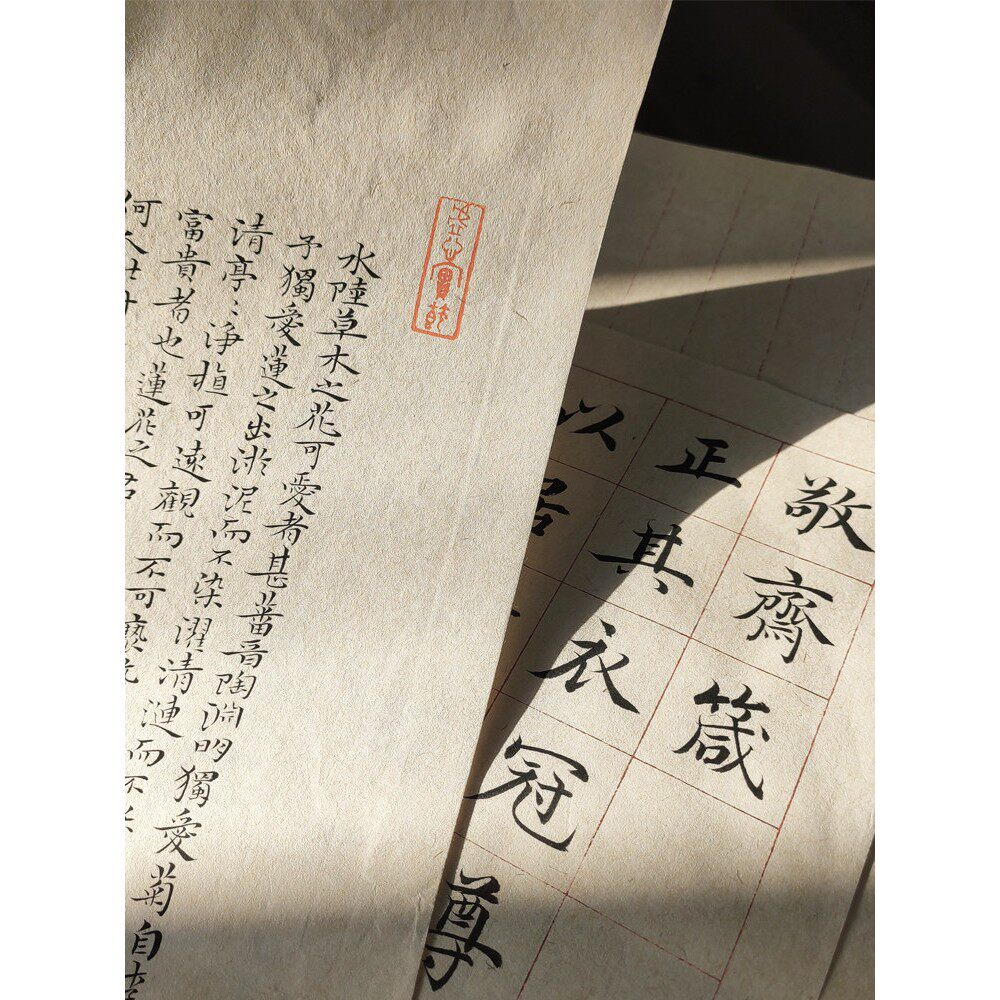 敬齋箴
正其衣冠尊
以居
水陸草木之花可愛者甚蕃晉陶淵明獨愛菊自
予獨愛蓮之出淤泥而不染濯清漣而不
清亭〻淨植可遠觀而不可褻
富貴者也蓮花之君
何